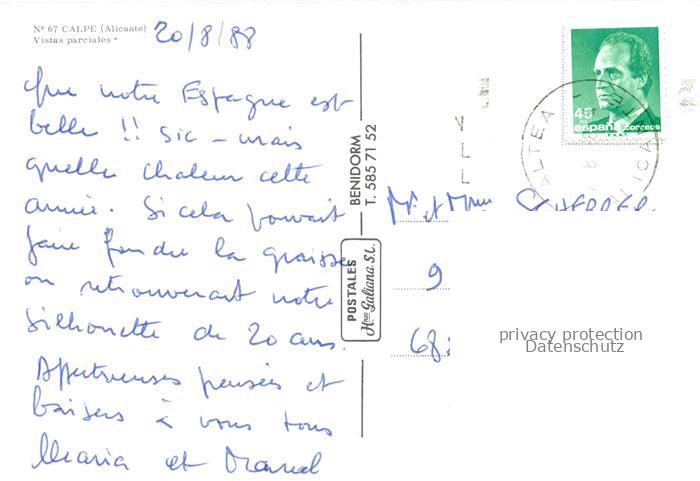 Nº 67 CALPE (Alicante)
Vistas parciales
20/8/88
Que notre Espagne est
belle !! Sic – mais
quelle chaleur cette
année. Si cela pouvait
faire fondre la graisse
on retrouverait notre
silhouette de 20 ans.
Affectueuses pensées et
baisers à vous tous
Maria et Marcel
BENIDORM
T. 585 71 52
POSTALES
Hnos Galiana S.L.
45
PTA
españa correos
F.N.M.T.
ALTEA
Mr et Mme
9
68
privacy protection
Datenschutz